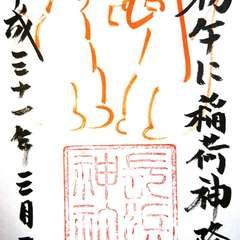 初午に稲荷神降
長浜神社
平成三十一年三月